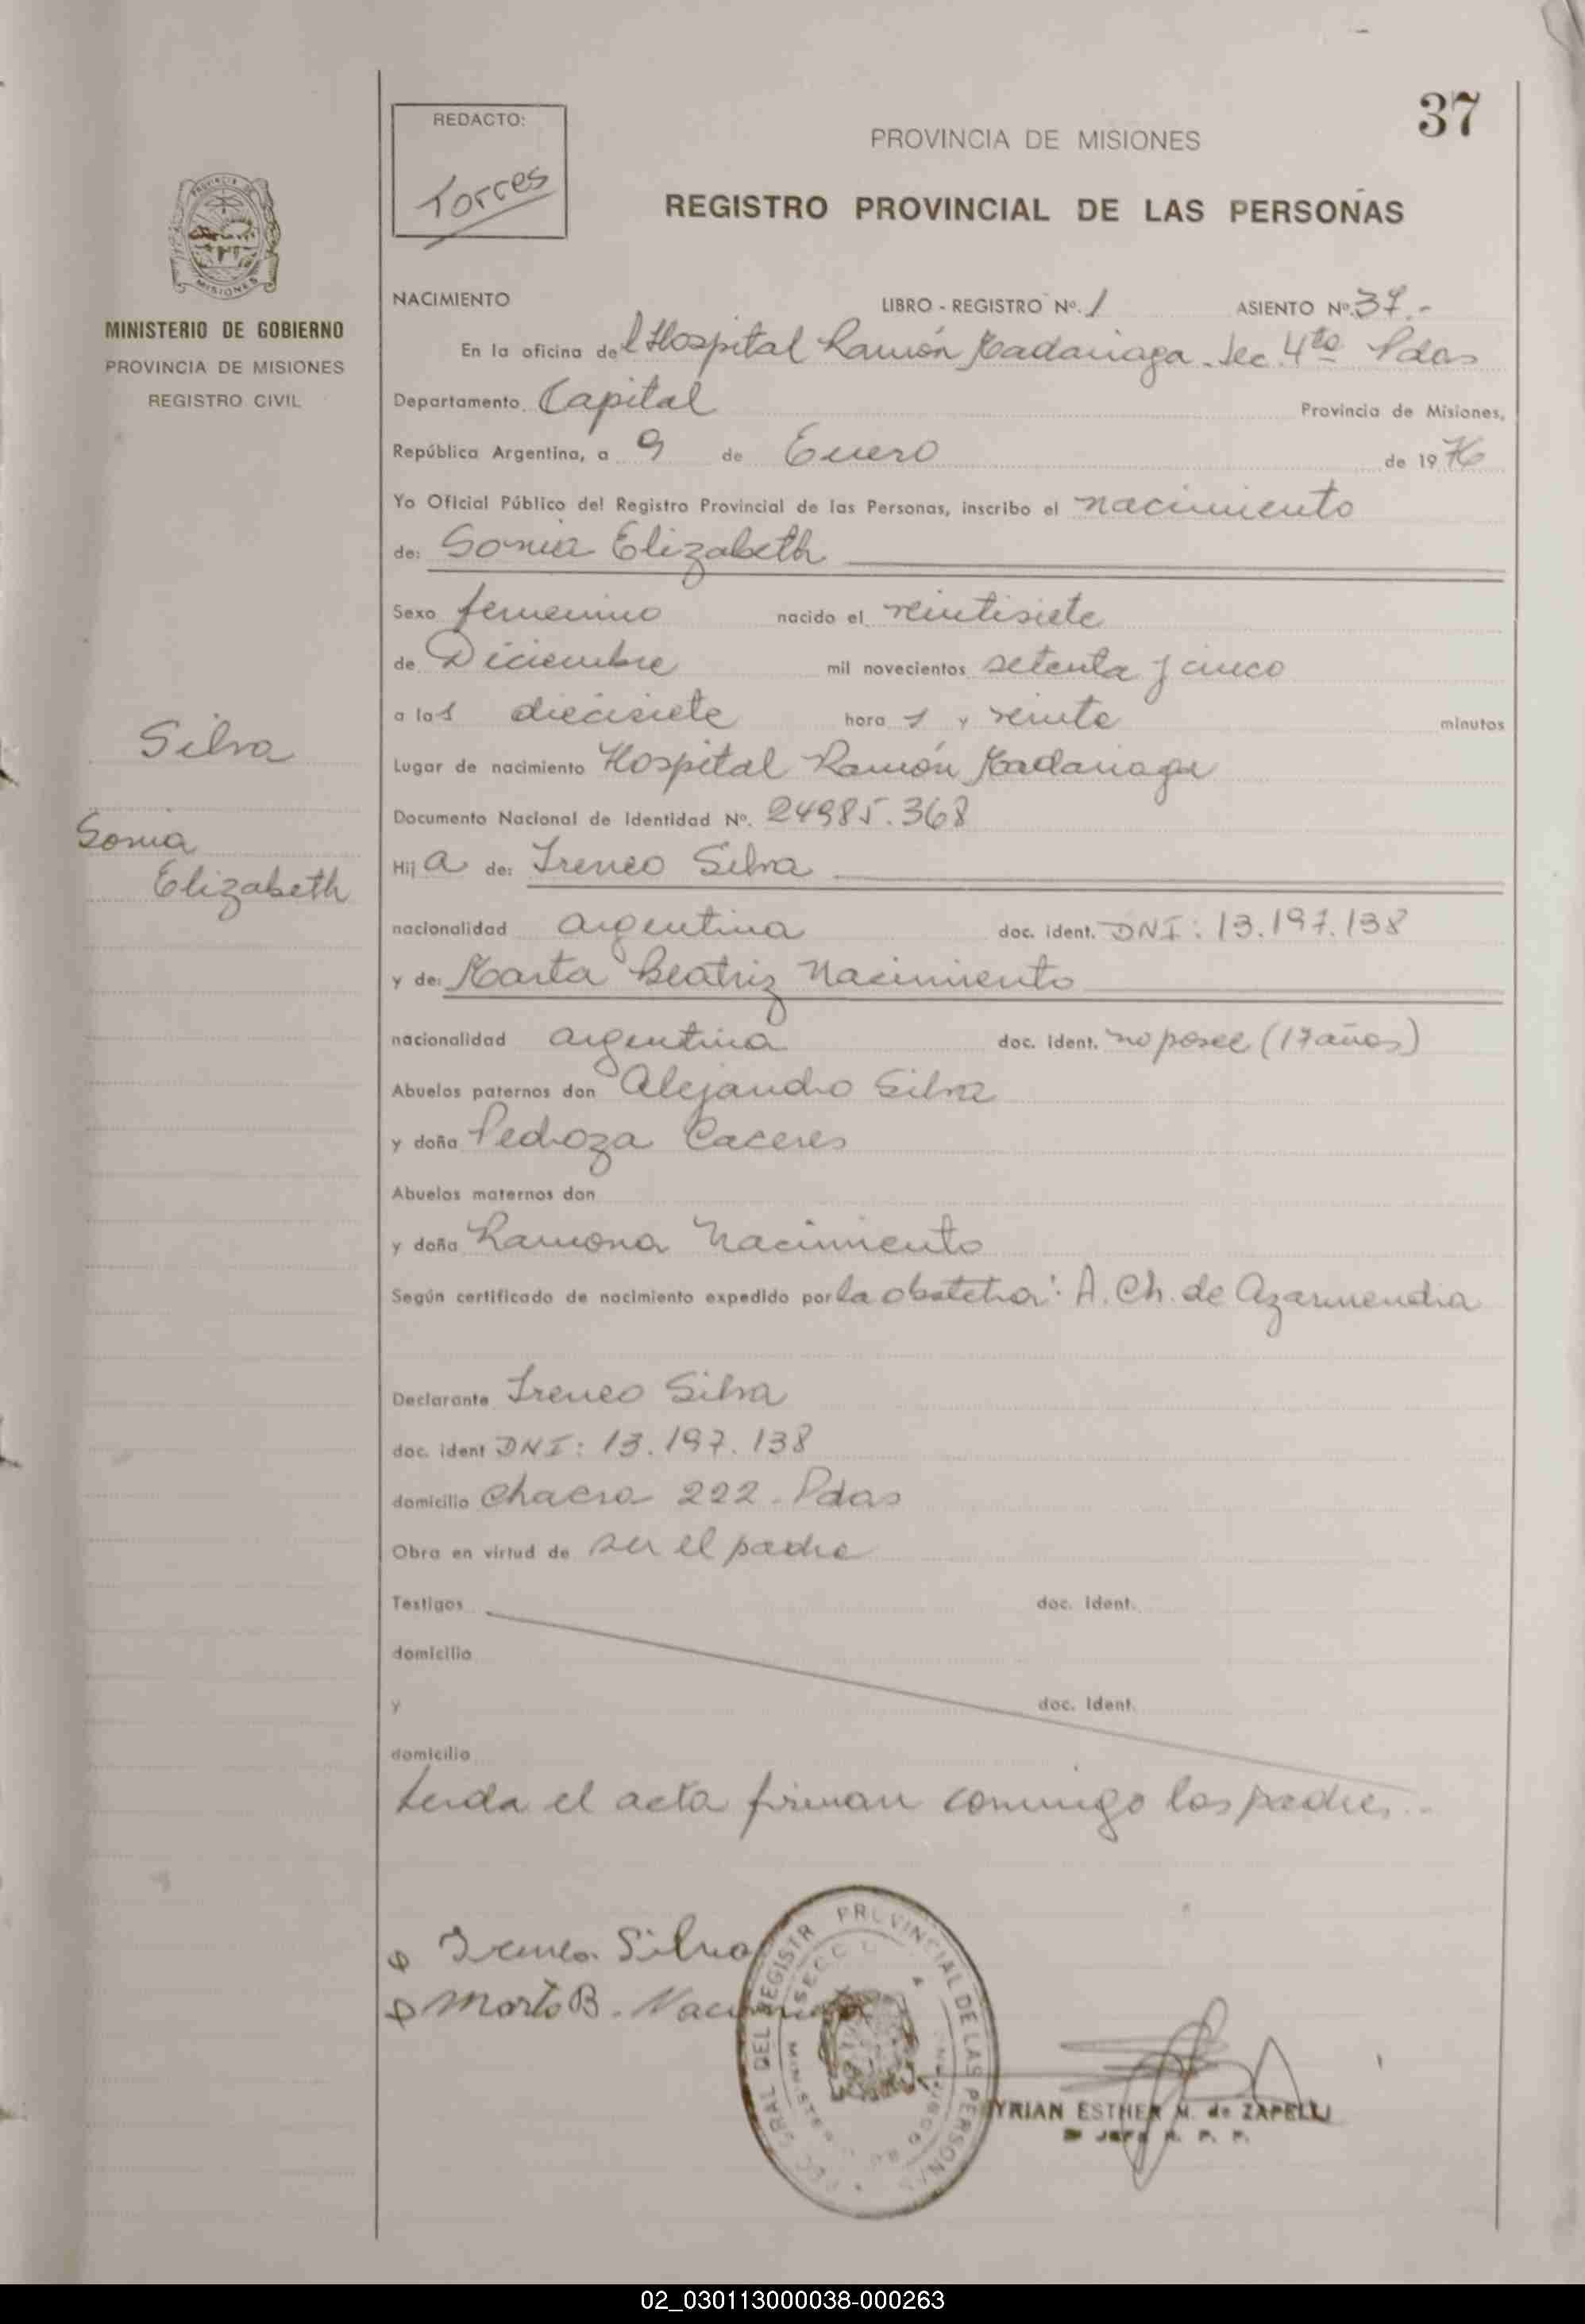 37
REDACTO:
Torres
PROVINCIA DE MISIONES
REGISTRO PROVINCIAL DE LAS PERSONAS
PROVINCIA DE
MISIONES
MINISTERIO DE GOBIERNO
PROVINCIA DE MISIONES
REGISTRO CIVIL
NACIMIENTO LIBRO - REGISTRO Nº. 1 ASIENTO Nº. 37.-
En la oficina del Hospital Ramón Madariaga - Sec. 4ta Pdas
Departamento Capital Provincia de Misiones,
República Argentina, a 9 de Enero de 1976
Yo Oficial Público del Registro Provincial de las Personas, inscribo el nacimiento
de: Sonia Elizabeth
Sexo femenino nacido el veintisiete
de Diciembre mil novecientos setenta y cinco
a las diecisiete hora s y veinte minutos
Lugar de nacimiento Hospital Ramón Madariaga
Documento Nacional de Identidad Nº. 24985.368
Hija de: Ireneo Silva
nacionalidad argentina doc. ident. DNI: 13.197.138
y de: Marta Beatriz Nacimiento
nacionalidad argentina doc. ident. no posee (17 años)
Abuelos paternos don Alejandro Silva
y doña Pedroza Caceres
Abuelos maternos don
y doña Ramona Nacimiento
Según certificado de nacimiento expedido por la obstetra: A. Ch. de Azarmendia
Declarante Ireneo Silva
doc. ident DNI: 13.197.138
domicilio Chacra 222 - Pdas
Obra en virtud de ser el padre
Testigos doc. ident.
domicilio
y doc. ident.
domicilio
Leida el acta firman conmigo los padres.-
Silva
Sonia
Elizabeth
Ireneo Silva
Marta B. Nacimiento
GRAL DEL REGISTR PROVINCIAL DE LAS PERSONAS
YRIAN ESTHER M. de ZAPELLI
Jefe R. P. P.
02_030113000038-000263